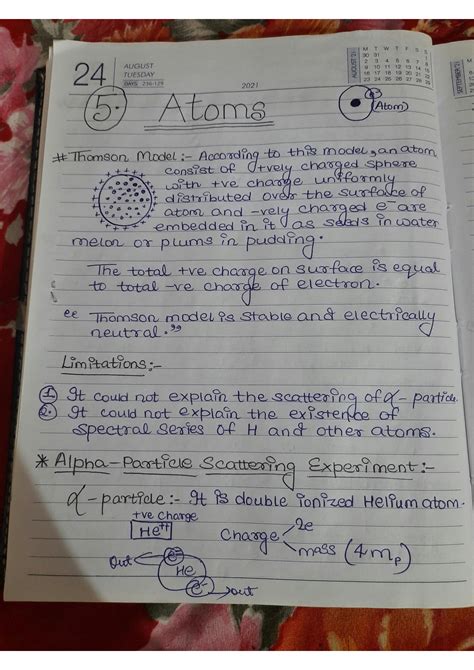 24
AUGUST
TUESDAY
DAYS 236-129
2021
AUGUST '21
M T W T F S S
30 31 1
2 3 4 5 6 7 8
9 10 11 12 13 14 15
16 17 18 19 20 21 22
23 24 25 26 27 28 29
SEPTEMBER '21
5. Atoms
(Atom)
# Thomson Model:- According to this model, an atom
consist of +vely charged sphere
with +ve charge uniformly
distributed over the surface of
atom and -vely charged e⁻ are
embedded in it as seeds in water
melon or plums in pudding.
The total +ve charge on surface is equal
to total -ve charge of electron.
“ Thomson model is stable and electrically
neutral.”
Limitations:-
1. It could not explain the scattering of α- particle.
2. It could not explain the existence of
spectral series of H and other atoms.
* Alpha-Particle Scattering Experiment:-
α-particle:- It is double ionized Helium atom.
+ve charge
He⁺⁺
Charge 2e
mass (4mₚ)
Out e⁻
He
e⁻ out